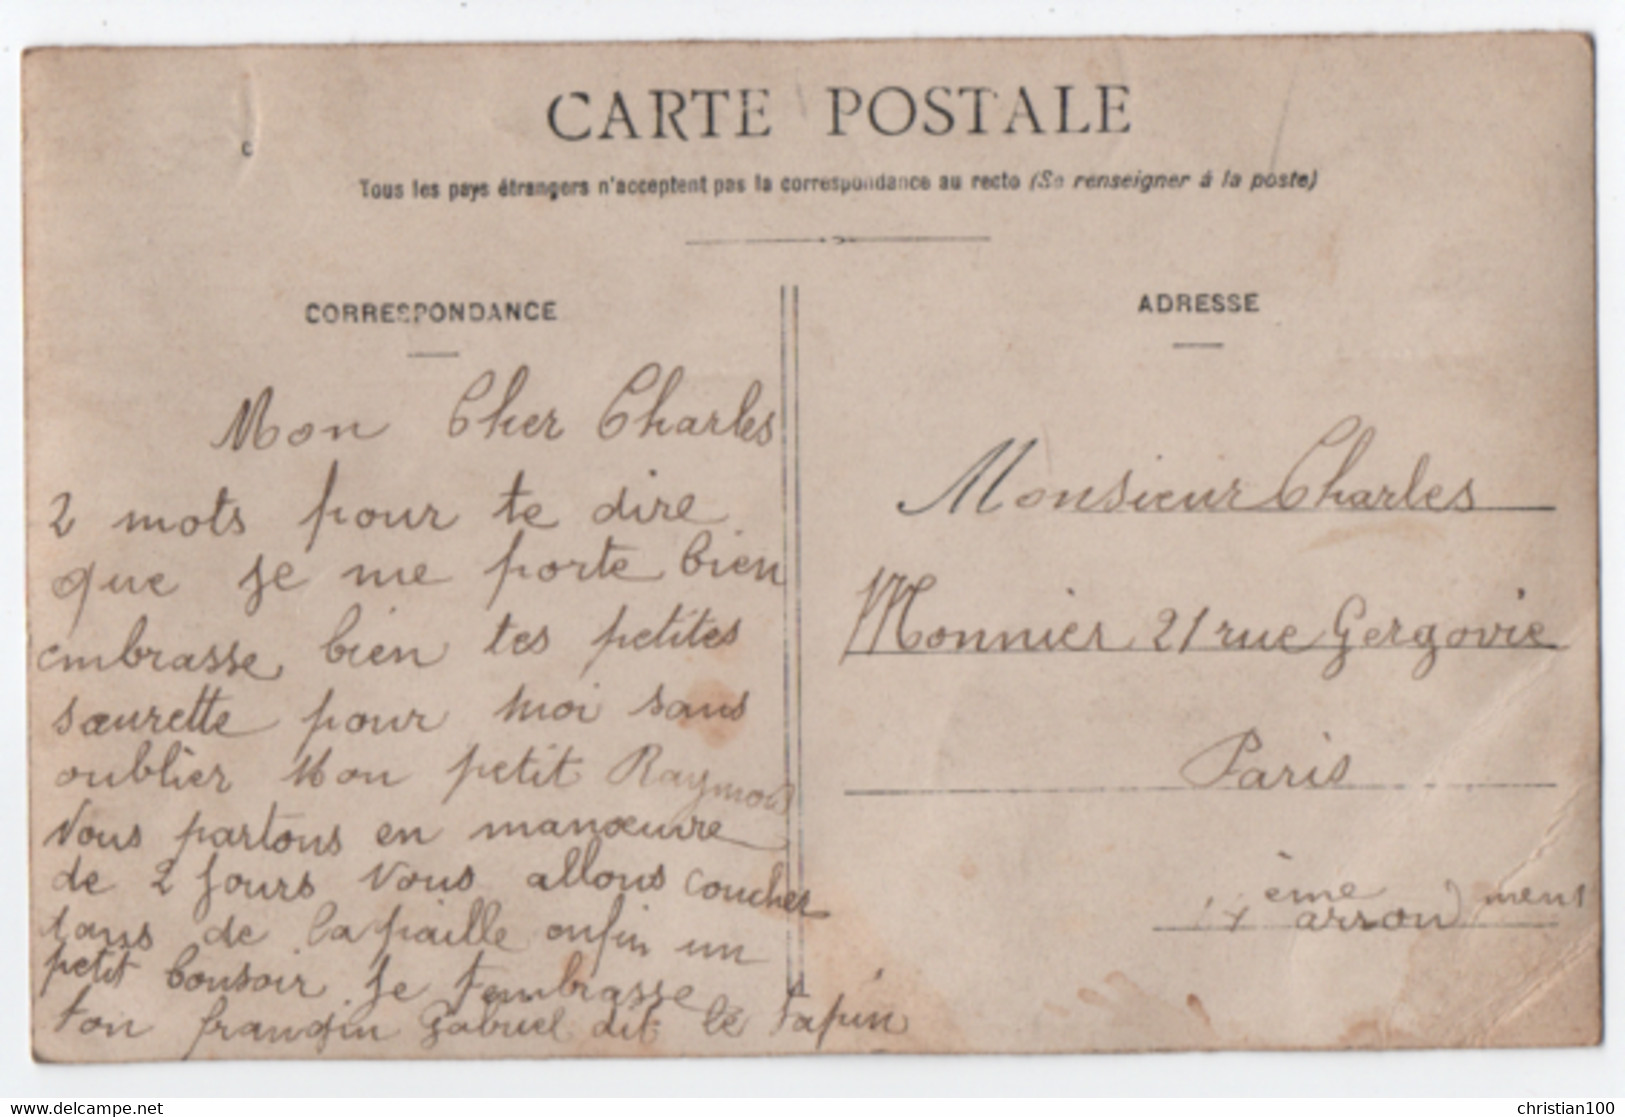 CARTE POSTALE
Tous les pays étrangers n'acceptent pas la correspondance au recto (Se renseigner à la poste)
CORRESPONDANCE
Mon Cher Charles
2 mots pour te dire
que je me porte bien
embrasse bien tes petites
sœurette pour moi sans
oublier mon petit Raymond
Nous partons en manœuvre
de 2 jours Nous allons coucher
dans de la paille enfin un
petit bonsoir je t'embrasse
ton frangin Gabriel dit le tapin
ADRESSE
Monsieur Charles
Monnier 21 rue Gergovie
Paris
14 ème arrond ment
delcampe.net
christian100